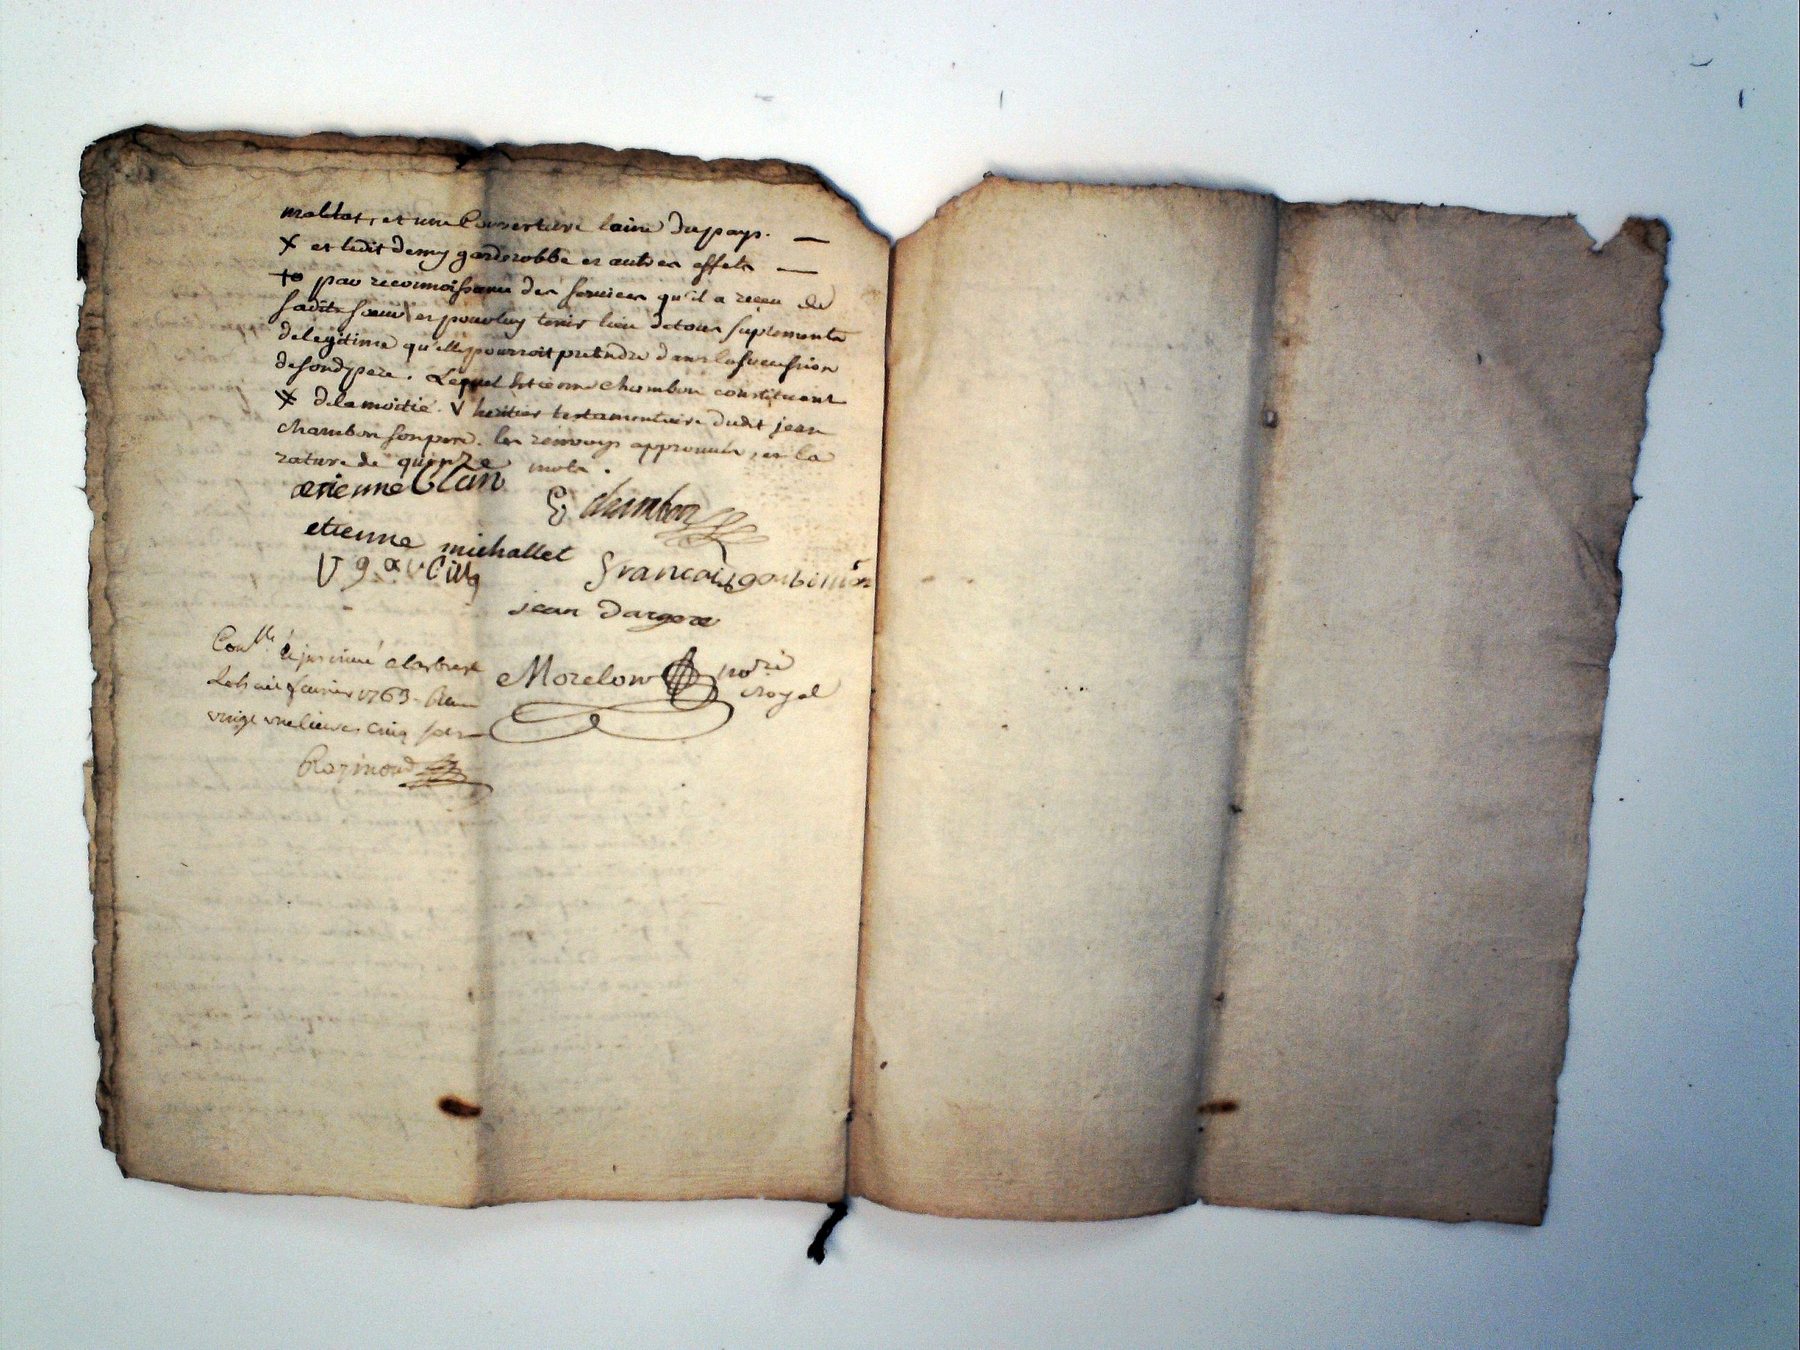 et une Couverture laine du pays. —
et ledit demy garderobbe et autres effets —
par reconnoissance des services qu'il a receu de
sadite soeur et pour luy tenir lieu de tous suplements
de legitime qu'elle pourroit pretendre dans la succession
de sondit pere. Lequel Estienne chambon constituant
de la moitié. V heritier testamentaire dudit jean
chambon son pere. les renvoys approuvés, et la
rature de quinze mots.
etienne blan
E chambon
etienne michallet
francois
jean dargere
Morelon no.re
royal
Con.lle
Le huit fevrier 1763. Reçu
vingt une livres cinq sols
Raymond